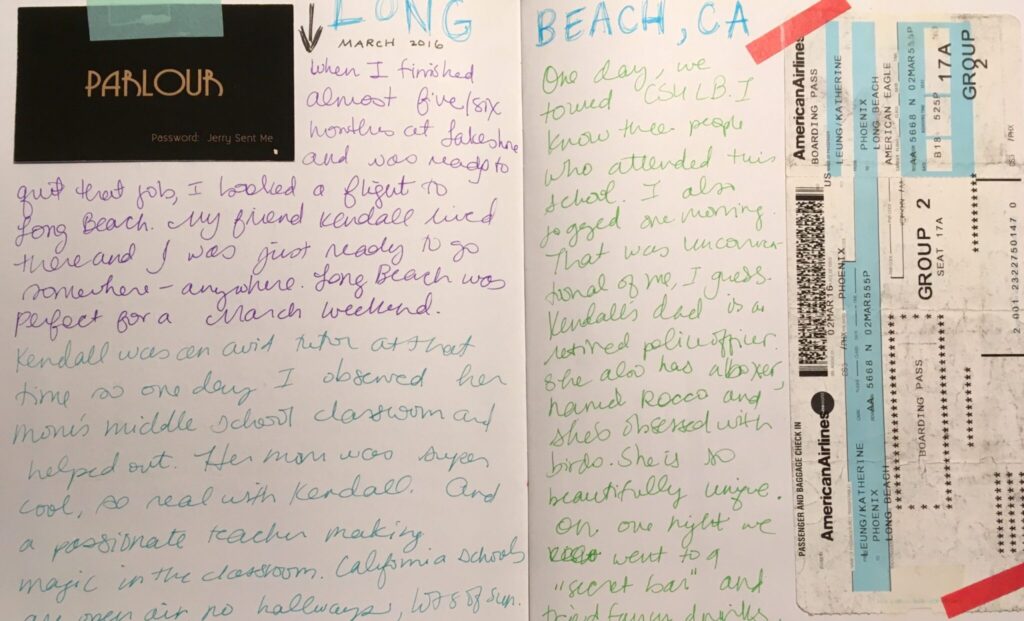 LONG
BEACH, CA
PARLOUR
Password: Jerry Sent Me
MARCH 2016
when I finished
almost five/six
months at Lakeshore
and was ready to
quit that job, I booked a flight to
Long Beach. My friend Kendall lived
there and I was just ready to go
somewhere - anywhere. Long Beach was
perfect for a March weekend.
Kendall was an avid tutor at that
time so one day I observed her
mom's middle school classroom and
helped out. Her mom was super
cool, so real with Kendall. And
a passionate teacher making
magic in the classroom. California schools
are open air no hallways, lots of sun.
One day, we
toured CSULB. I
know three people
who attended this
school. I also
jogged one morning.
That was unconven-
tional of me, I guess.
Kendall's dad is a
retired police officer.
She also has a boxer,
named Rocco and
she's obsessed with
birds. She is so
beautifully unique.
On one night we
went to a
"secret bar" and
tried fancy drinks
AmericanAirlines
BOARDING PASS
LEUNG/KATHERINE
PHOENIX
LONG BEACH
AMERICAN EAGLE
AA 5668 N 02MAR555P
B18 525P 17A
GROUP 2
US
02MAR16
PHOENIX
GROUP 2
SEAT 17A
2 001 2322750147 0
PASSENGER AND BAGGAGE CHECK IN
AmericanAirlines
AA 5668 N 02MAR555P
LEUNG/KATHERINE
PHOENIX
LONG BEACH
BOARDING PASS